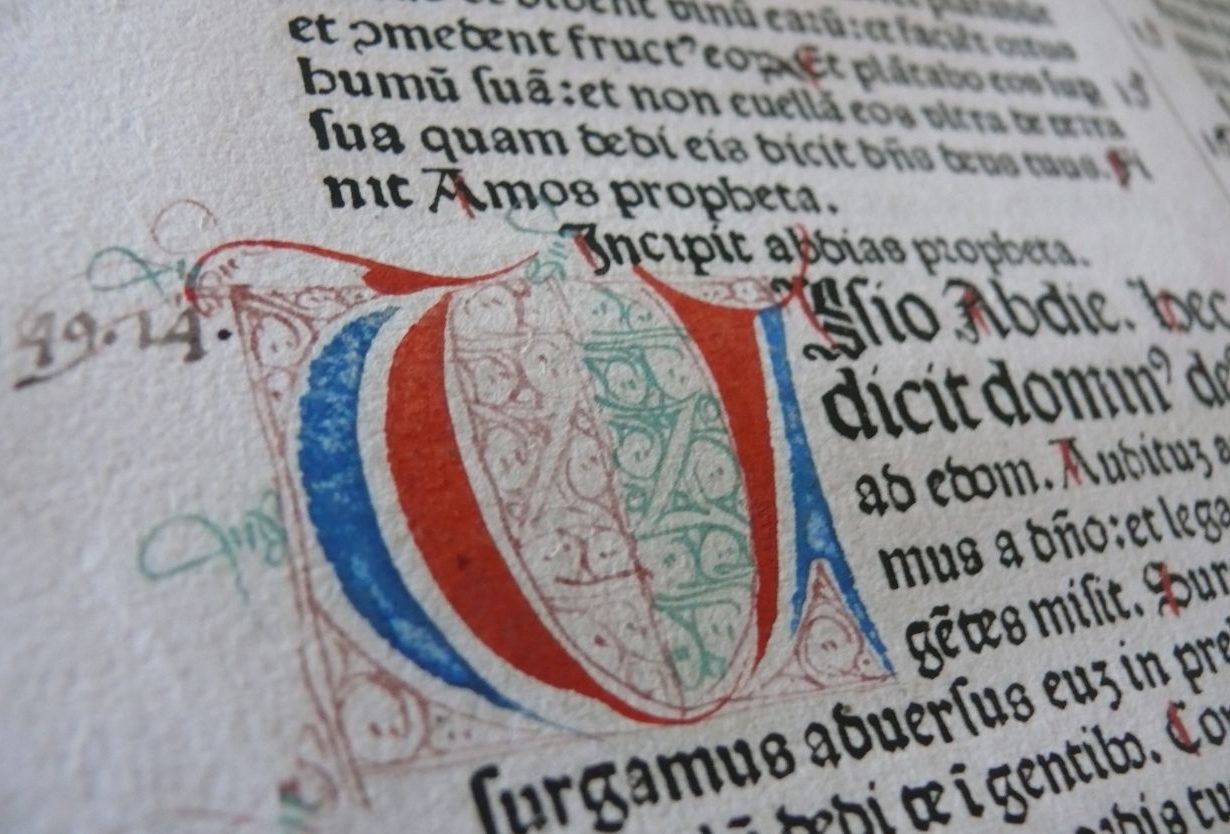 et bibent vinū eaꝝ̄: et faciēt ortos
et ꝯmedent fruct⁹ eoꝝ Et plātabo eos sup
humū ſuā: et non euellā eos vltra de terra
ſua quam dedi eis dicit dn̄s deus tuus. Fi
nit Amos propheta.
Incipit abdias propheta.
49.14.
Viſio Abdie. hec
dicit domin⁹
ad edom. Audituꝫ
mus a dn̄o: et
gētes miſit.
ſurgamus aduerſus euꝫ in
dedi te ī gentibꝰ.